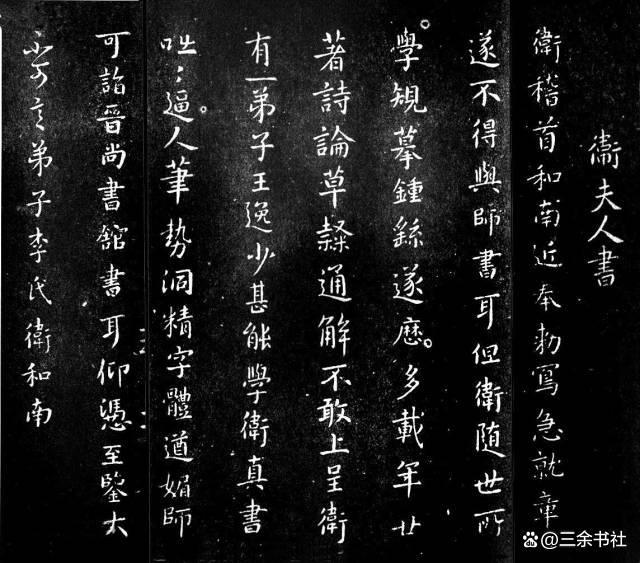 衛夫人書
衛稽首和南近奉勅寫急就章
遂不得與師書耳但衛隨世所
學規摹鍾繇遂歷多載年廿
著詩論草隸通解不敢上呈衛
有一弟子王逸少甚能學衛真書
咄〻逼人筆勢洞精字體遒媚師
可詣晉尚書館書耳仰憑至鑒大
不可言弟子李氏衛和南
@三余书社